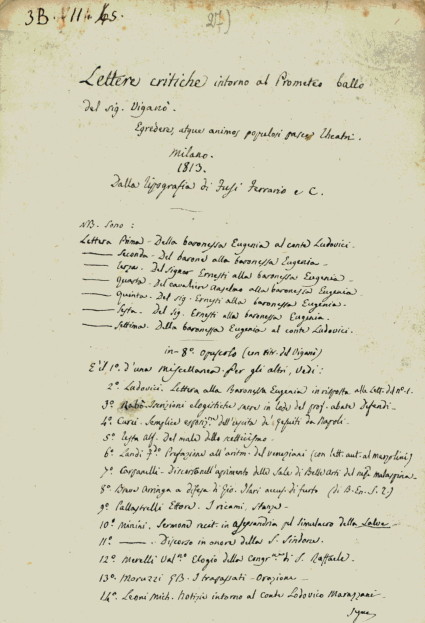 3B. 11. 45.
27)
Lettere critiche intorno al Prometeo ballo
del sig. Viganò.
Egredere, atque animos populosi pasce Theatri.
Milano.
1813.
Dalla Tipografia di Fusi Ferrario e C.
NB. Sono:
Lettera Prima - Della baronessa Eugenia al conte Ludovici.
Seconda - Del barone alla baronessa Eugenia -
Terza - Del Signor Ernesti alla baronessa Eugenia -
Quarta - Del cavaliere Anselmo alla baronessa Eugenia -
Quinta - Del sig. Ernesti alla baronessa Eugenia.
Sesta - Del sig. Ernesti alla baronessa Eugenia.
Settima - Della baronessa Eugenia al conte Ludovici.
in-8º. Opuscolo (con ritr. del Viganò)
È il 1º d'una miscellanea. Per gli altri, vedi:
2º Ludovici. Lettera alla Baronessa Eugenia in risposta alla Lett. del nº 1.
3º Iscrizioni elogistiche in lode del prof. abate
4º Curci. Semplice d'Gesuiti da Napoli.
5º Testa Alf. del male dello scetticismo.
6º Landi Prefazione all' del veneziani (con lett. aut. al
7º Discorso all'aprimento delle Sale di Belle Arti del Malaspina.
8º Arringa a difesa di Gio. Ilari accus. di furto
9º Pallastrelli Ettore. I ricami, Stanze
10º Minini. Sermone recit. in Alessandria pel simulacro della Salve -
11º Discorso in onore della S. Sindone.
12º Morelli Elogio della di S. Raffaele.
13º Moruzzi GB - I trapassati - Orazione -
14º Leoni Mich. Notizie intorno al Conte Lodovico Marazzani